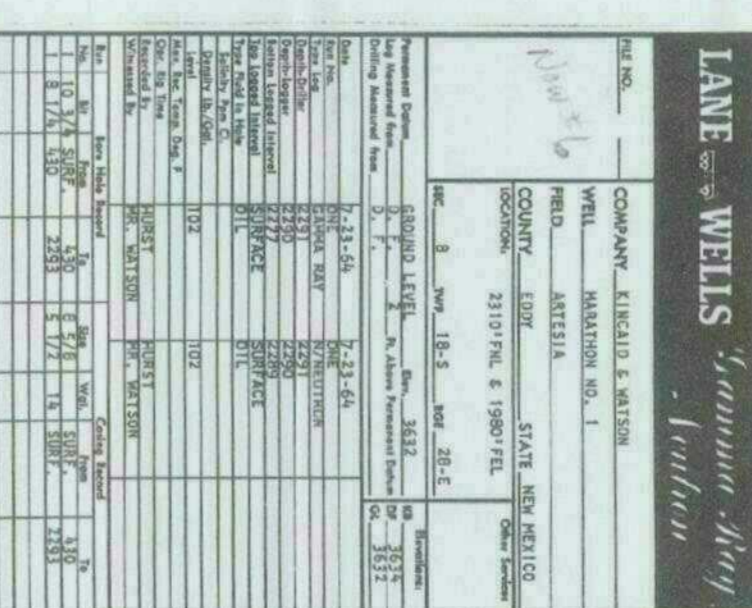 LANE WELLS Gamma Ray
Neutron
FILE NO.
Now #6
COMPANY KINCAID & WATSON
WELL MARATHON NO. 1
FIELD ARTESIA
COUNTY EDDY STATE NEW MEXICO
LOCATION: 2310'FNL & 1980'FEL
Other Services
SEC. 8 TWP 18-S RGE 28-E
Permanent Datum GROUND LEVEL Elev. 3632
Log Measured from D. F. 2 Ft. Above Permanent Datum
Drilling Measured from D. F.
Elevations:
KB
DF 3634
GL 3632
Date 7-23-64 7-23-64
Run No. ONE ONE
Type Log GAMMA RAY N/NEUTRON
Depth-Driller 2291 2291
Depth-Logger 2290 2290
Bottom Logged Interval 2277 2289
Top Logged Interval SURFACE SURFACE
Type Fluid in Hole OIL OIL
Salinity Ppm Cl.
Density lb./Gal.
Level 102 102
Max. Rec. Temp. Deg. F
Opr. Rig Time
Recorded By HURST HURST
Witnessed By MR. WATSON MR. WATSON
Run Bore Hole Record Casing Record
No. Bit From To Size Wgt. From To
1 10 3/4 SURF. 430 8 5/8 SURF. 430
1 8 1/4 430 2293 5 1/2 14 SURF. 2293